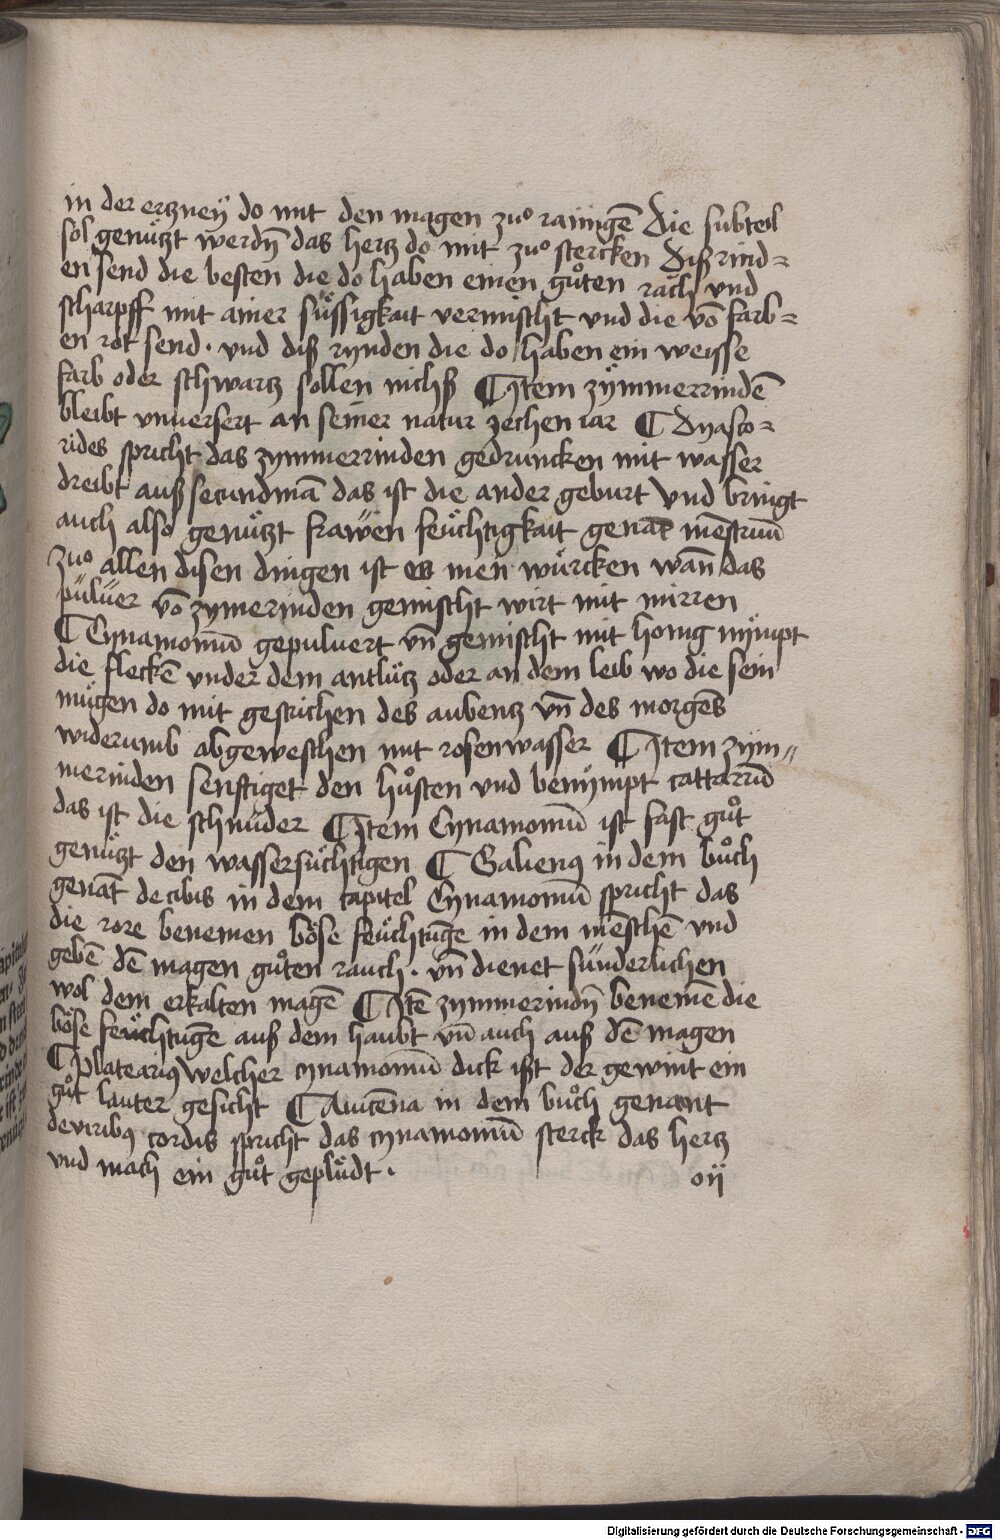 in der ertzneÿ do mit den magen zuͦ rainigē Die subteil
sol genützt werdn̄ das hertz do mit zuͦ stercken Diß rind=
en send die besten die do haben einen gůten räch und
scharpff mit ainer süssigkait vermischt und die vō farb=
en rot send · und diß rynden die do haben ein weysse
farb oder schwartz sollen nichß ¶ Item zÿmmerrindē
bleibt vnuersert an seiner natur zechen iar ¶ Dyasco=
rides spricht das zymmerrinden gedruncken mit wasser
dreibt auß secundinā das ist die ander geburt und bringt
auch also genützt frawen feüchtigkait genāt mēstruū
zuͦ allen disen dingen ist es men würcken wan̄ das
puluer vō zymerinden gemischt wirt mit mirren
¶ Cynamomū gepuluert vn̄ gemischt mit honig nÿmpt
die fleckē under dem antlütz oder an dem leib wo die sein
mügen do mit gestrichen des aubentz vn̄ des morgēs
widerumb abgeweschen mit rosenwasser ¶ Item zÿm=
merinden senftiget den hůsten und benÿmpt cattarrū
das ist die schnüder ¶ Item Cynamomū ist fast gůt
genützt den wassersüchtigen ¶ Galienꝰ in dem bůch
genāt de cibis in dem capitel Cynamomū spricht das
die rore benemen böse feüchtūge in dem mēschē und
gebē dē magen gůten rauch · vn̄ dienet sünderlichen
wol dem erkalten magē ¶ Itē zymmerindn̄ benemē die
böse feüchtūge auß dem haubt vn̄ auch auß dē magen
¶ Plateariꝰ welcher cynamomū dick ißt der gewint ein
gůt lauter gesicht ¶ Auicēna in dem bůch genant
de viribꝰ cordis spricht das cynamomū sterck das hertz
und mach ein gůt geplüdt ·
oij
Digitalisierung gefördert durch die Deutsche Forschungsgemeinschaft - DFG